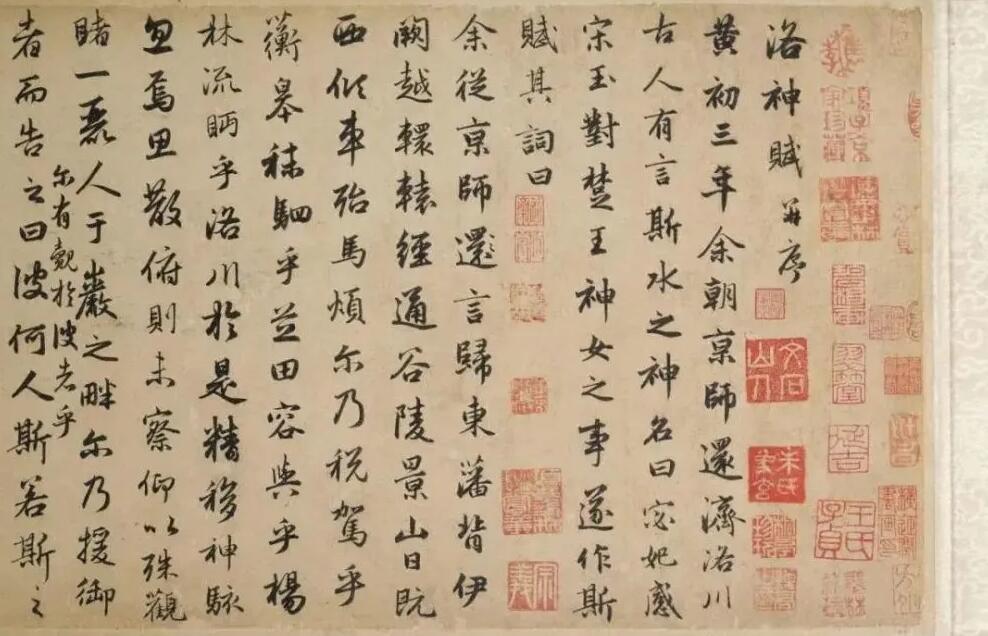 洛神賦并序
黄初三年余朝京師還濟洛川
古人有言斯水之神名曰宓妃感
宋玉對楚王神女之事遂作斯
賦其詞曰
余從京師還言歸東藩背伊
闕越轘轅經通谷陵景山日既
西傾車殆馬煩尔乃税駕乎
蘅皋秣駟乎芝田容與乎楊
林流眄乎洛川於是精移神駭
忽焉思散俯則未察仰以殊觀
睹一麗人于巖之畔尔乃援御
尔有覿於彼者乎
者而告之曰彼何人斯若斯之